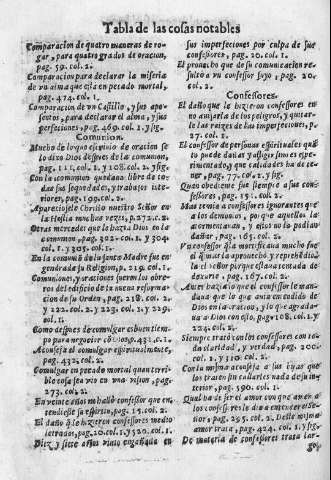 Tabla de las cosas notables
Comparacion de quatro maneras de ro-
gar, para quatro grados de oracion,
pag. 59. col. 2.
Comparacion para declarar la miseria
de vn alma que està en pecado mortal,
pag. 474. col. 1.
Comparacion de vn Castillo, y sus apo-
sentos, para declarar el alma, y sus
perfecciones, pag. 469. col. 1. y sig.
Comunion.
Mucho de lo que escriuio de oracion se
lo dixo Dios despues de la comunion,
pag. 111. col. 1. y 208. col. 2. y sig.
Con la comunion quedaua libre de to-
das sus sequedades, y trabajos inte-
riores, pag. 190. col. 2.
Apareciosele Christo nuestro Señor en
la Hostia muchas vezes, p. 272. c. 2.
Otras mercedes que le hazia Dios en la
comunion, pag. 302. col. 1. y 304.
col. 1. y 305. col. 1.
En la comunio de la santa Madre fue en
gendrada su Religion, 219. col. 1.
Comuniones, y oraciones fueron los obre-
ros del edificio de la nueua reforma-
cion de su Orden, pag. 218. col. 2.
y 222. col. 2. y 223. col. 1. y 229.
col. 1.
Como despues de comulgar es buen tiem-
po para negociar cõ Dios, p. 431. c. 1.
Aconseja el comulgar espiritualmente,
pag. 432. col. 2.
Comulgar en pecado mortal quan terri-
ble cosa sea vio en vna vision, pag.
273. col. 2.
En veinte años no hallò confessor que en-
tendiesse su espiritu, pag. 15. col. 2.
El daño que le hizieron confessores medio
letrados, pag. 20. col. 1. y 520. col. 1.
Diez y siete años viuio engañada en
sus imperfecciones por culpa de sus
confessores, pag. 20. col. 1.
El prouecho que de su comunicacion re-
sultò a vn confessor suyo, pag. 20.
col. 2.
Confessores.
El daño que le hizieron confessores en
no auisarla de los peligros, y quitar-
le las raizes de sus imperfecciones, p.
27. col. 1.
El confessor de personas espirituales quã-
to puede dañar, y assi
rimentado,
ner, pag. 77. col. 2. y sig.
Quan obediente fue siempre a sus con-
fessores, pag. 151. col. 2.
Mas temia a confessores ignorantes que
a los demonios, porque aquellos la
atormentauan, y estos no lo podian
dañar, pag. 165. col. 2.
Vn confessor q̃ la mortificaua mucho fue
el que mas la aprouechò, y reprehẽdiòla
el Señor porque estaua tentada de
dexarle, pag. 167. col. 2.
Auer hazia lo que el confessor le man-
daua que lo que auia entendido de
Dios en la oracion, y lo que agrada-
ua a Dios con esto, pag. 208. col. 1. y
224. col. 2.
Siempre tratò con los confessores con to-
da claridad, y verdad, pag. 200.
col. 1. y 310. col. 2.
Con la misma aconseja a sus hijas que
los traten sin callarles nada de su in-
terior, pag. 590. col. 1.
Qual ha de ser el amor con que amen a
los confessores le dixo entender el Se-
ñor, pag. 295. col. 2. Deste mismo
amor trata, pag. 424. col. 1. y sig.
De materia de confessores trata lar-
go,